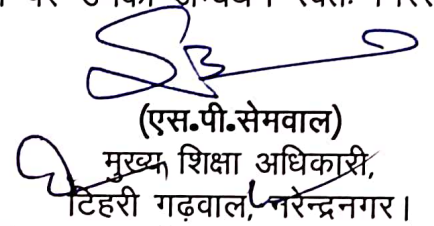 (एस.पी.सेमवाल)
मुख्य शिक्षा अधिकारी,
टिहरी गढ़वाल, नरेन्द्रनगर।